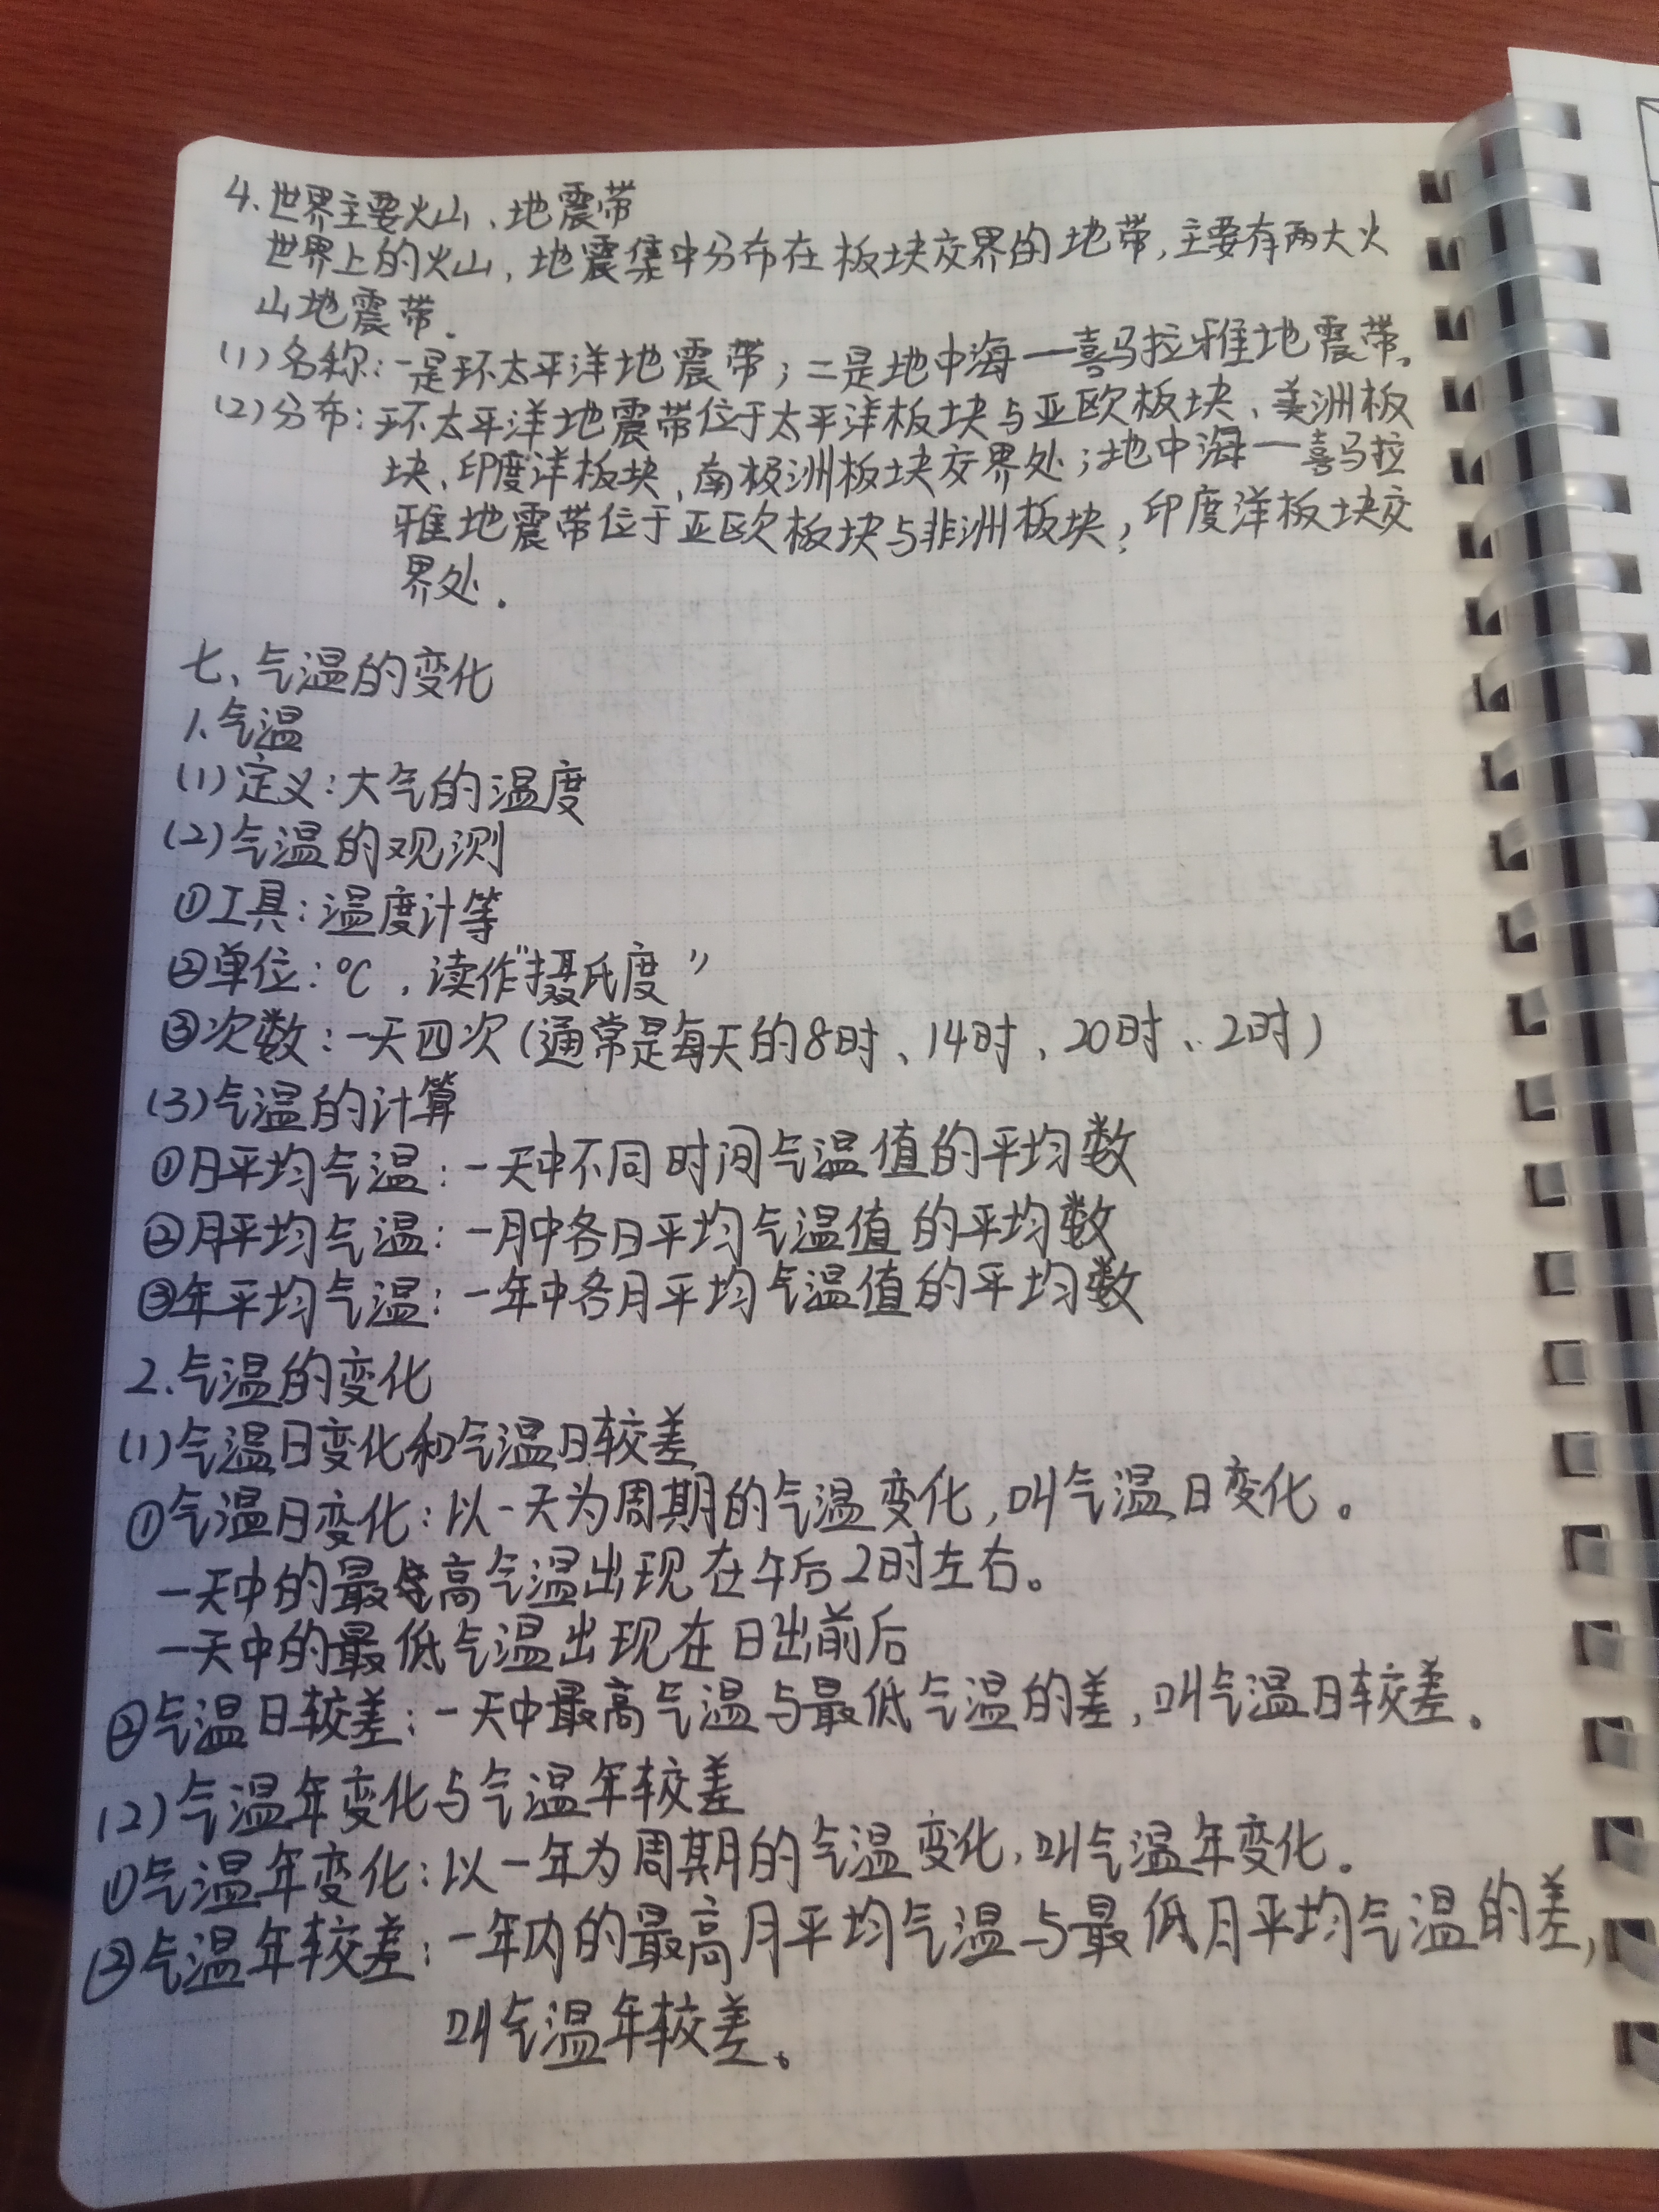 4.世界主要火山、地震带
世界上的火山,地震集中分布在板块交界的地带,主要有两大火
山地震带.
(1)名称:一是环太平洋地震带;二是地中海一喜马拉雅地震带。
(2)分布:环太平洋地震带位于太平洋板块与亚欧板块、美洲板
块、印度洋板块、南极洲板块交界处;地中海一喜马拉
雅地震带位于亚欧板块与非洲板块,印度洋板块交
界处.
七、气温的变化
1.气温
(1)定义:大气的温度
(2)气温的观测
①工具:温度计等
②单位:℃,读作"摄氏度"
③次数:一天四次(通常是每天的8时、14时、20时、2时)
(3)气温的计算
①月平均气温:一天中不同时间气温值的平均数
②月平均气温:一月中各日平均气温值的平均数
③年平均气温:一年中各月平均气温值的平均数
2.气温的变化
(1)气温日变化和气温日较差
①气温日变化:以一天为周期的气温变化,叫气温日变化。
一天中的最高气温出现在午后2时左右。
一天中的最低气温出现在日出前后
②气温日较差:一天中最高气温与最低气温的差,叫气温日较差。
(2)气温年变化与气温年较差
①气温年变化:以一年为周期的气温变化,叫气温年变化。
②气温年较差:一年内的最高月平均气温与最低月平均气温的差,
叫气温年较差。